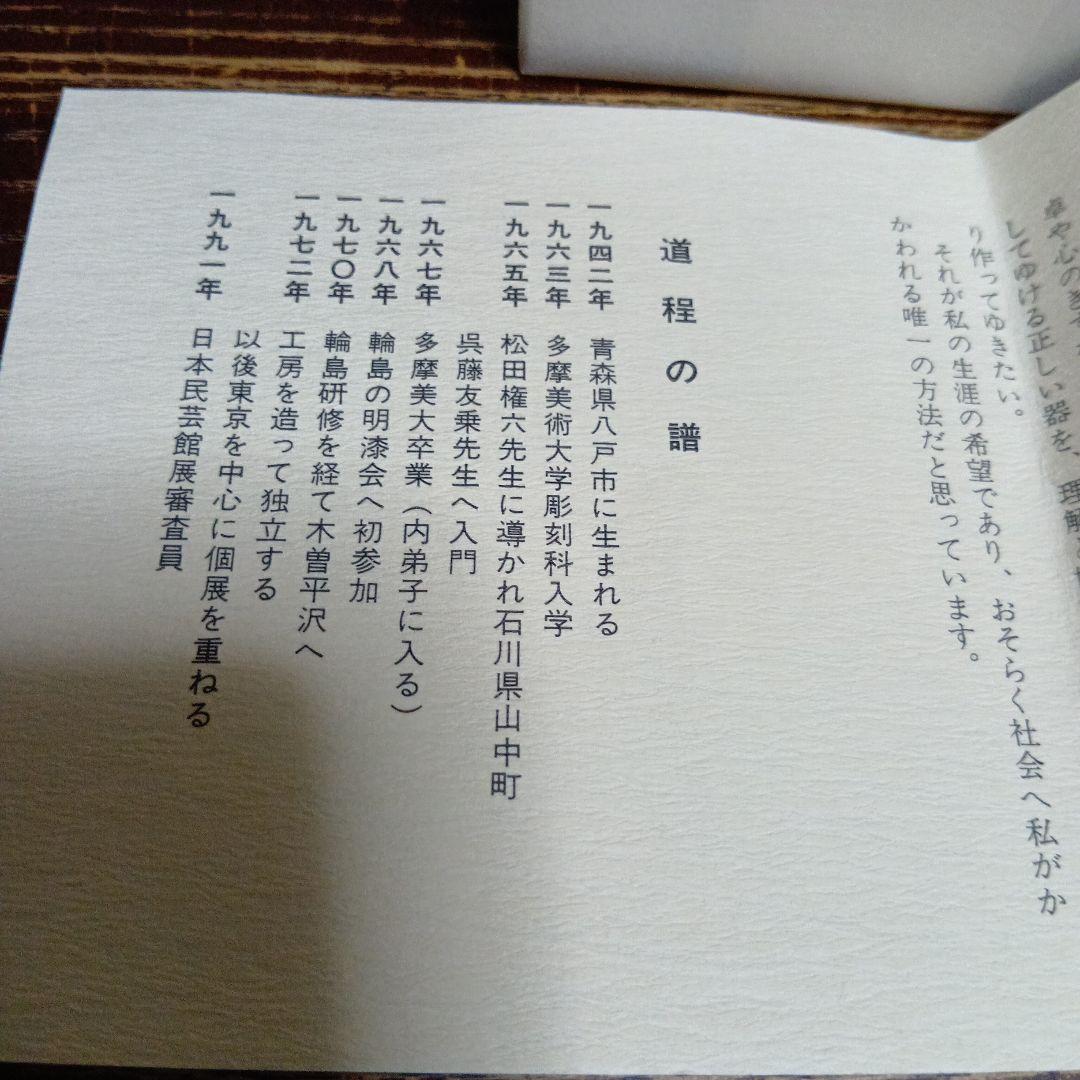 卓や心の
してゆける正しい器を、理解
り作ってゆきたい。
それが私の生涯の希望であり、おそらく社会へ私がか
かわれる唯一の方法だと思っています。
道程の譜
一九四二年 青森県八戸市に生まれる
一九六三年 多摩美術大学彫刻科入学
一九六五年 松田権六先生に導かれ石川県山中町
呉藤友乗先生へ入門
一九六七年 多摩美大卒業（内弟子に入る）
一九六八年 輪島の明漆会へ初参加
一九七〇年 輪島研修を経て木曽平沢へ
一九七二年 工房を造って独立する
以後東京を中心に個展を重ねる
一九九一年 日本民芸館展審査員